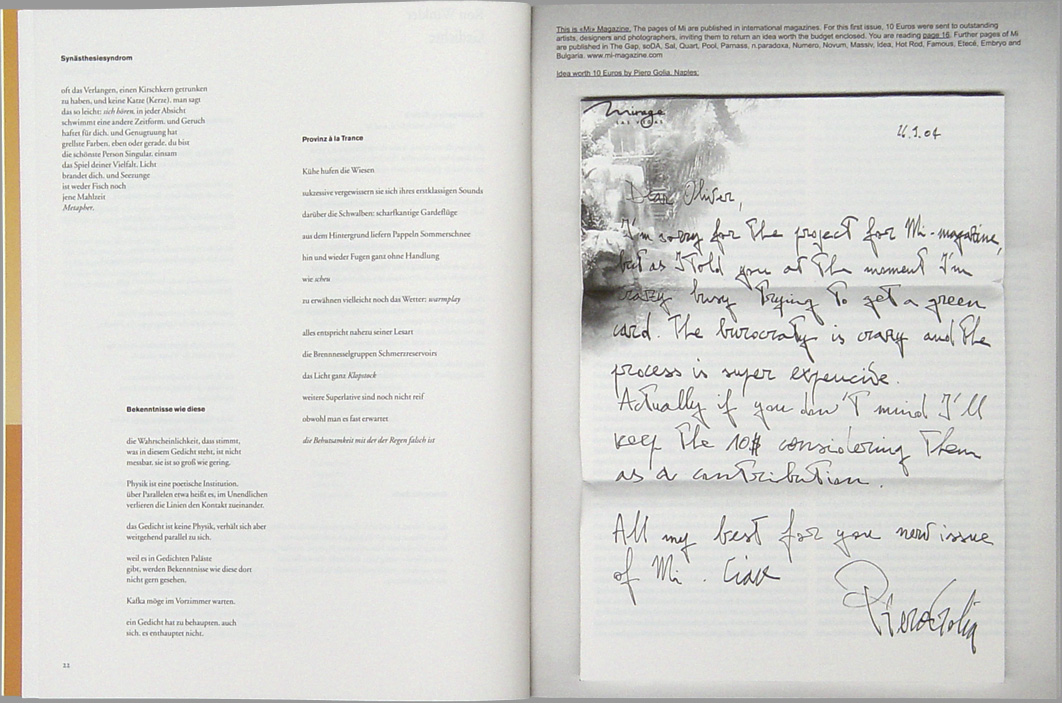 Synästhesiesyndrom
oft das Verlangen, einen Kirschkern getrunken
zu haben, und keine Katze (Kerze), man sagt
das so leicht: sich hören, in jeder Absicht
schwimmt eine andere Zeitform, und Geruch
haftet für dich, und Genugtuung hat
grellste Farben, eben oder gerade, du bist
die schönste Person Singular, einsam
das Spiel deiner Vielfalt, Licht
brandet dich, und Seezunge
ist weder Fisch noch
jene Mahlzeit
Metapher.
Bekenntnisse wie diese
die Wahrscheinlichkeit, dass stimmt,
was in diesem Gedicht steht, ist nicht
messbar, sie ist so groß wie gering.
Physik ist eine poetische Institution.
über Parallelen etwa heißt es, im Unendlichen
verlieren die Linien den Kontakt zueinander.
das Gedicht ist keine Physik, verhält sich aber
weitgehend parallel zu sich.
weil es in Gedichten Paläste
gibt, werden Bekenntnisse wie diese dort
nicht gern gesehen.
Kafka möge im Vorzimmer warten.
ein Gedicht hat zu behaupten, auch
sich, es enthauptet nicht.
22
Provinz à la Trance
Kühe hufen die Wiesen
sukzessive vergewissern sie sich ihres erstklassigen Sounds
darüber die Schwalben: scharfkantige Gardeflüge
aus dem Hintergrund liefern Pappeln Sommerschnee
hin und wieder Fugen ganz ohne Handlung
wie scheu
zu erwähnen vielleicht noch das Wetter: warmplay
alles entspricht nahezu seiner Lesart
die Brennnesselgruppen Schmerzreservoirs
das Licht ganz Klopstock
weitere Superlative sind noch nicht reif
obwohl man es fast erwartet
die Behutsamkeit mit der der Regen falsch ist
This is «Mi» Magazine. The pages of Mi are published in international magazines. For this first issue, 10 Euros were sent to outstanding
artists, designers and photographers, inviting them to return an idea worth the budget enclosed. You are reading page 16. Further pages of Mi
are published in The Gap, soDA, Sal, Quart, Pool, Parnass, n.paradoxa, Numero, Novum, Massiv, Idea, Hot Rod, Famous, Etecé, Embryo and
Bulgaria. www.mi-magazine.com
Idea worth 10 Euros by Piero Golia, Naples:
Mirage
LAS VEGAS
Dear Oliver,
I'm sorry for the project for Mi-magazine,
but as I told you at the moment I'm
crazy busy trying to get a green
card. The burocraty is crazy and the
process is super expencive.
Actually if you don't mind I'll
keep the 10$ considering them
as a contribution.
All my best for you new issue
of Mi. Ciao
Piero Golia